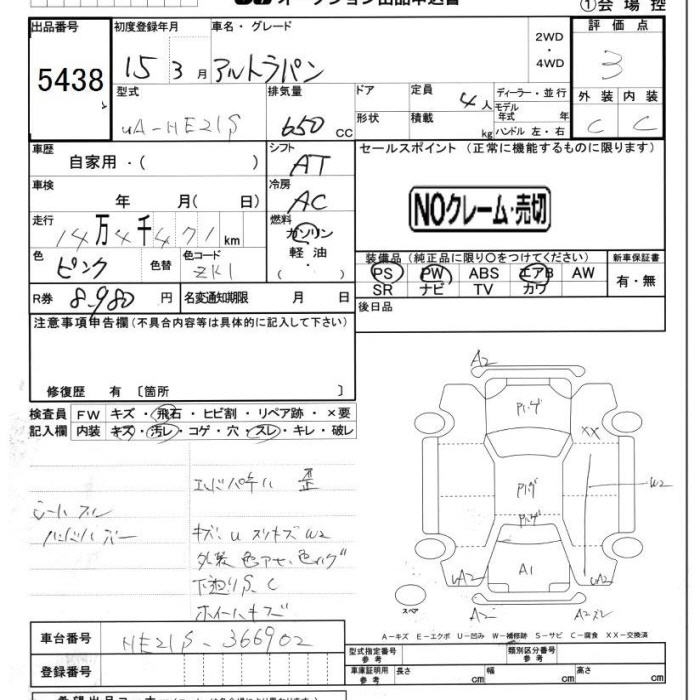 ①会場控
出品番号 初度登録年月 車名・グレード 2WD 評価点
5438 15 3 月 アルトラパン ・ 4WD 3
型式 排気量 ドア 定員 ディーラー・並行 外装 内装
4 人 モデル年式 年
UA-HE21S 650 CC 形状 積載 kg ハンドル 左・右 C C
車歴 シフト セールスポイント (正常に機能するものに限ります)
自家用・( ) AT
車検 冷房
年 月 ( 日) AC NOクレーム・売切
走行 燃料
14万4千471km ガソリン
色 色替 色コード 軽油 装備品 (純正品に限り〇をつけてください) 新車保証書
ピンク ZK1 ・( ) PS PW ABS エアB AW 有・無
SR ナビ TV カワ
R券 8,980 円 名変通知期限 月 日 後日品
注意事項申告欄 (不具合内容等は具体的に記入して下さい)
修復歴 有 〔箇所 〕
検査員 FW キズ・飛石・ヒビ割・リペア跡・×要
記入欄 内装 キズ・汚レ・コゲ・穴・スレ・キレ・破レ
A2
XX
W2
A1
UA2 UA2
スペア A2 A2スレ
シートスレ
キズ U スリキズ W2
下廻りS、C
ホイールキズ
A-キズ E-エクボ U-凹み W-補修跡 S-サビ C-腐食 XX-交換済
車台番号 HE21S-366902 型式指定番号 参考 類別区分番号 参考
登録番号 車庫証明用 参考 長さ cm 幅 cm 高さ cm